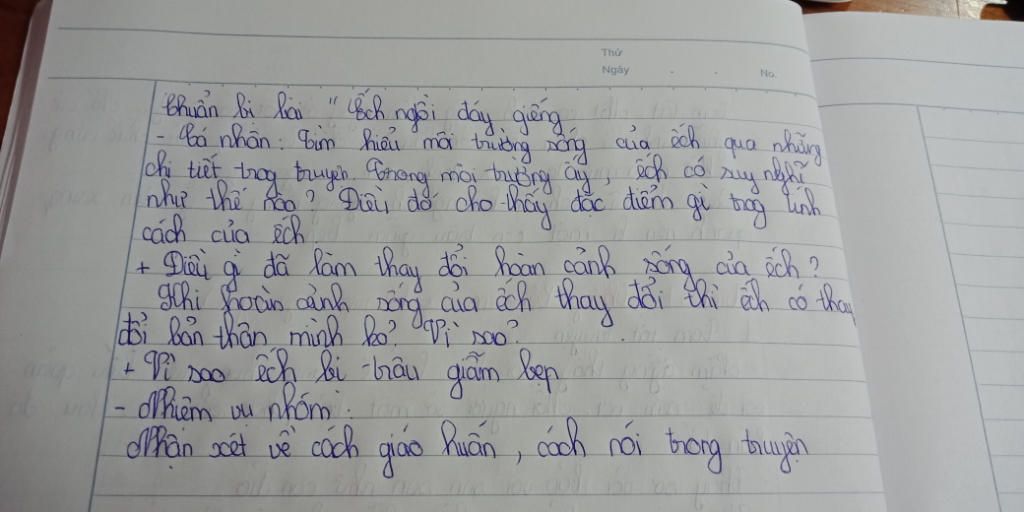 Thứ
Ngày . . No.
Chuẩn bị bài "Ếch ngồi đáy giếng
- Cá nhân: Tìm hiểu môi trường sống của ếch qua những
chi tiết trog truyện. Trong môi trường ấy, ếch có suy nghĩ
như thế nào? Điều đó cho thấy đặc điểm gì trog tính
cách của ếch.
+ Điều gì đã làm thay đổi hoàn cảnh sống của ếch?
Khi hoàn cảnh sống của ếch thay đổi thì ếch có thay
đổi bản thân mình ko? Vì sao?
+ Vì sao ếch bị trâu giẫm bẹp
- Nhiệm vụ nhóm:
Nhận xét về cách giáo huấn, cách nói trong truyện